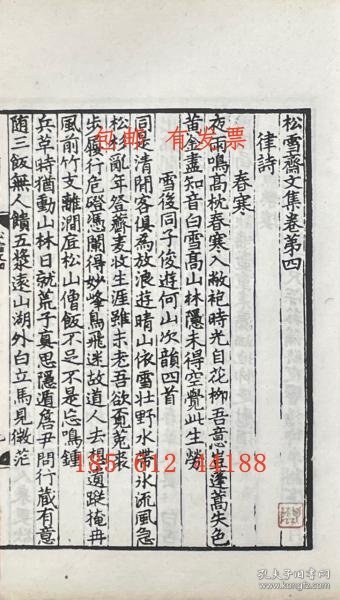 松雪齋文集卷第四
律詩
春寒
夜雨鳴高枕春寒入敝袍時光自花柳吾意豈蓬蒿失色
黄金盡知音白雪高山林隱未得空覺此生勞
雪後同子俊遊何山次韻四首
同是清閒客俱為放浪遊晴山依雪壯野水帶水流風急
松杉亂年登薺麦收生涯雖未老吾欲
步履行危磴憑闌得妙峰鳥飛迷故道人去想遺蹤掩冉
風前竹支離澗底松山僧飯不足不是忘鳴鍾
兵草時猶動山林日就荒子真思隱遁詹尹問行藏有意
隨三飯無人饋五漿遠山湖外白立馬見微茫
包邮 有发票
185 612 44188
孔夫子旧书网